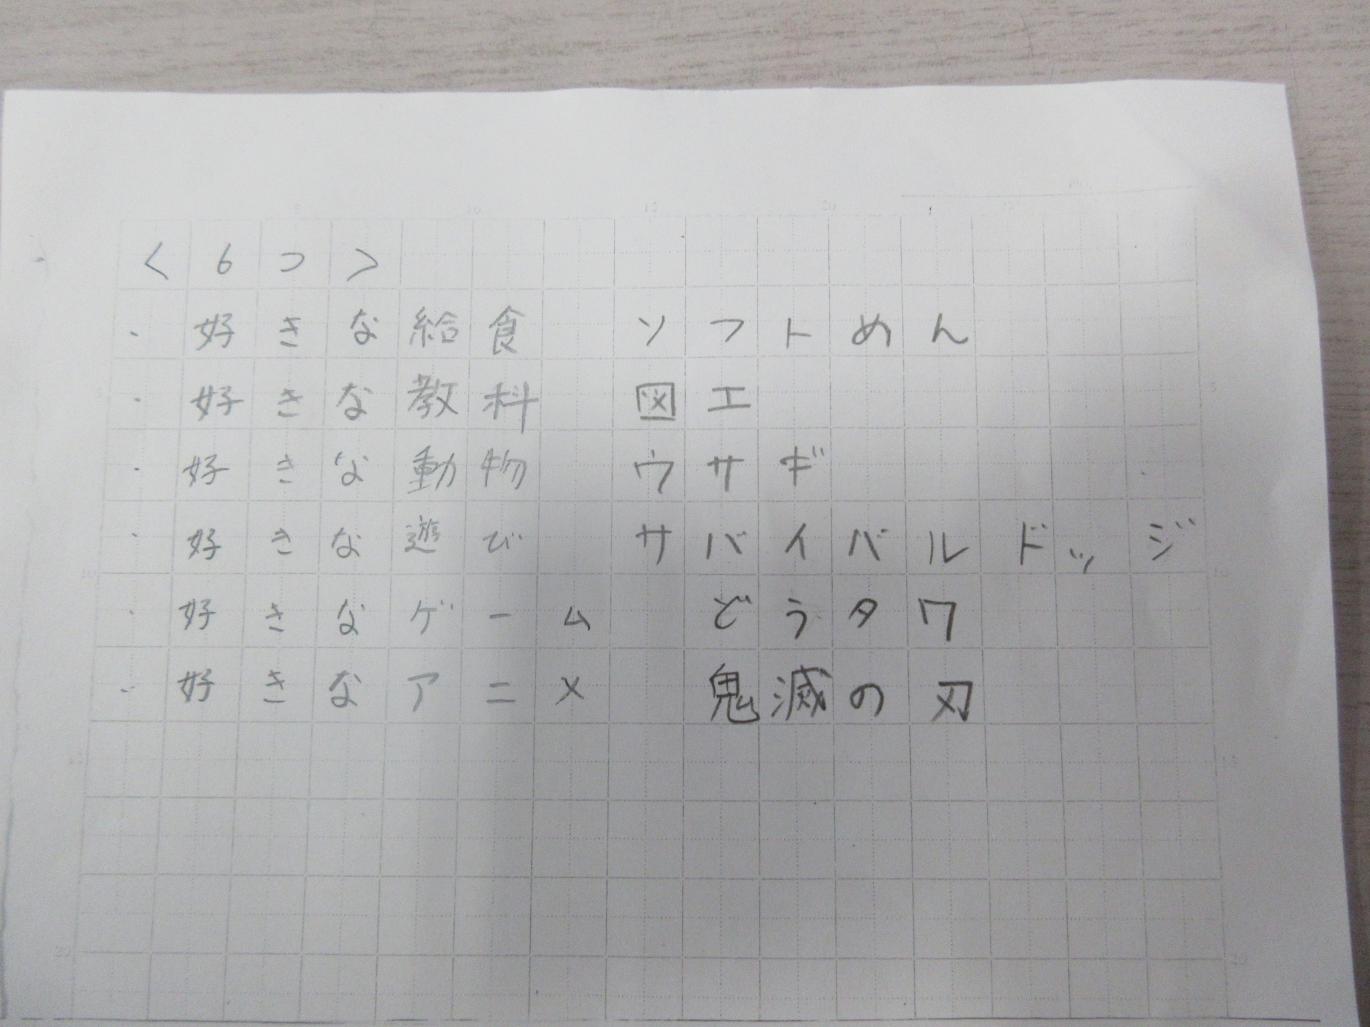 <6つ>
・好きな給食 ソフトめん
・好きな教科 図工
・好きな動物 ウサギ
・好きな遊び サバイバルドッジ
・好きなゲーム どうタワ
・好きなアニメ 鬼滅の刃